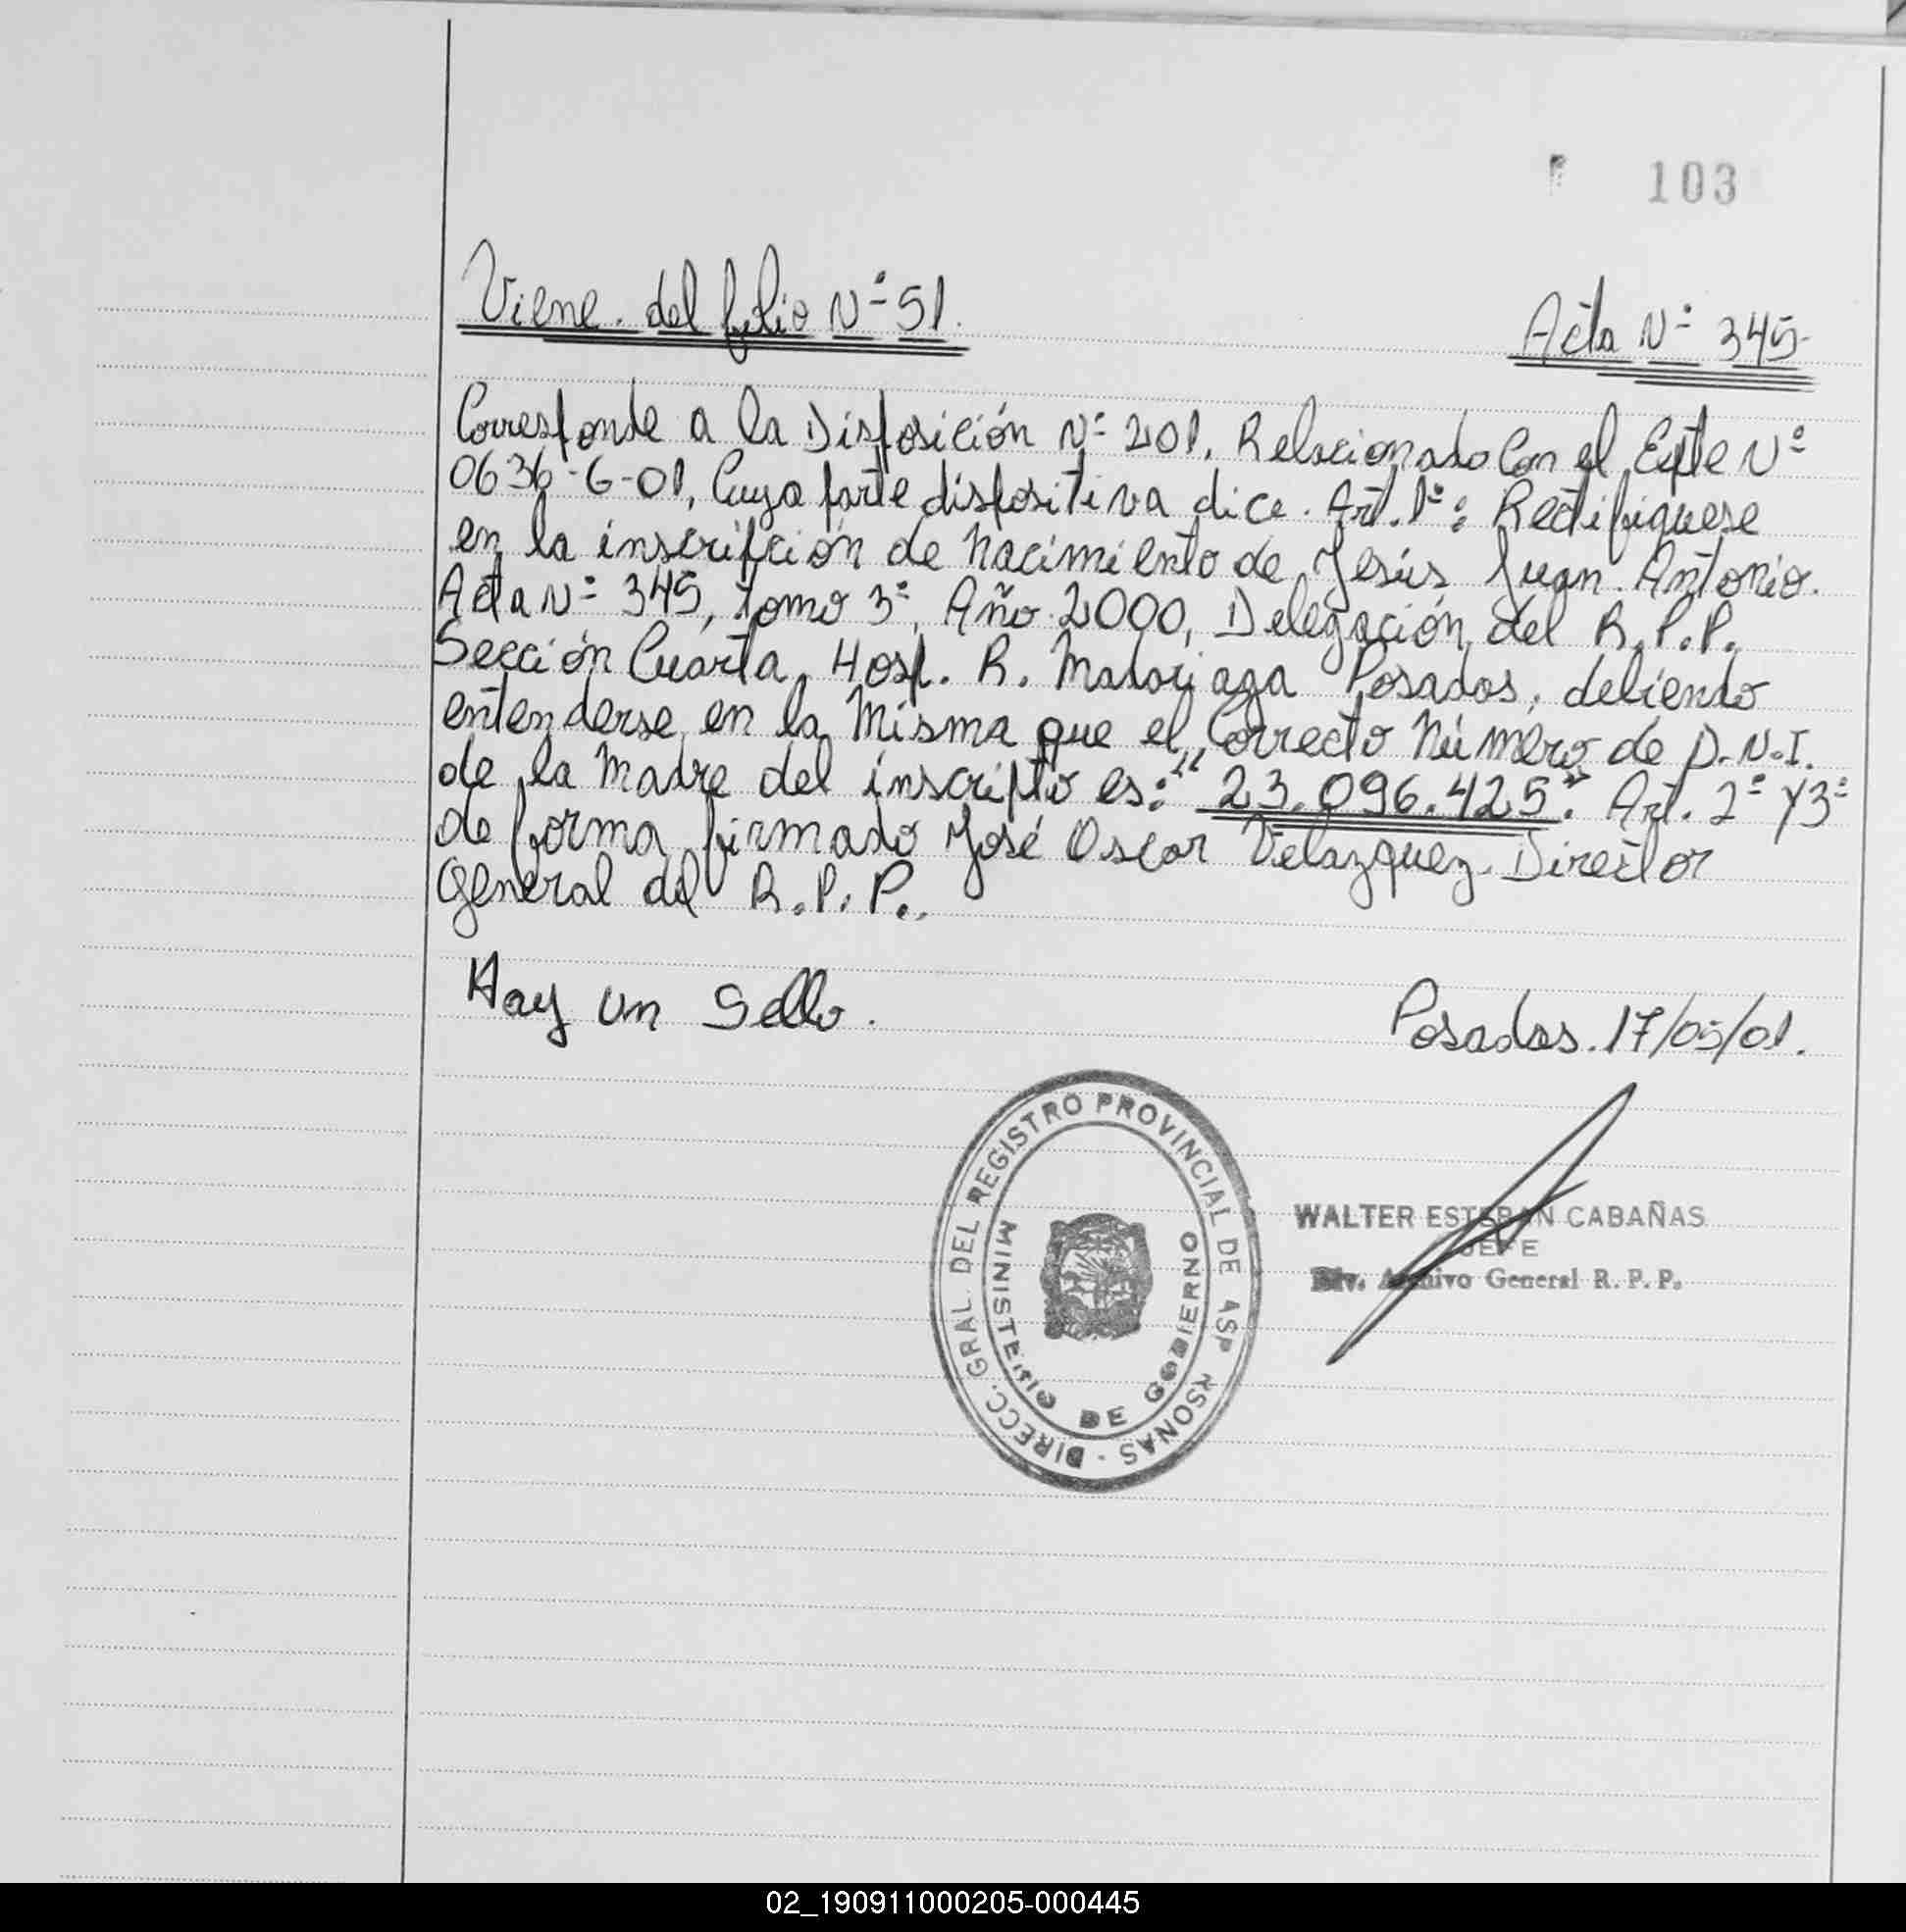 103
Viene del folio Nº 51.
Acta Nº 345-
Corresponde a la Disposición Nº 201. Relacionado Con el Expte Nº
0636-6-01, Cuya parte dispositiva dice. Art. 1º: Rectifiquese
en la inscripción de nacimiento de Jesús Juan Antonio.
Acta Nº 345, tomo 3º, Año 2000, Delegación del R.P.P.
Sección Cuarta Hosp. R. Madariaga Posadas, debiendo
entenderse en la Misma que el Correcto Número de D.N.I.
de la Madre del inscripto es: "23.096.425". Art. 2º y 3º
de forma firmado José Oscar Velazquez. Director
General del R.P.P.
Hay un Sello.
Posadas. 17/05/01.
DIRECC. GRAL. DEL REGISTRO PROVINCIAL DE
MINISTERIO DE GOBIERNO
WALTER ESTEBAN CABAÑAS
JEFE
Div. Archivo General R. P. P.
02_190911000205-000445